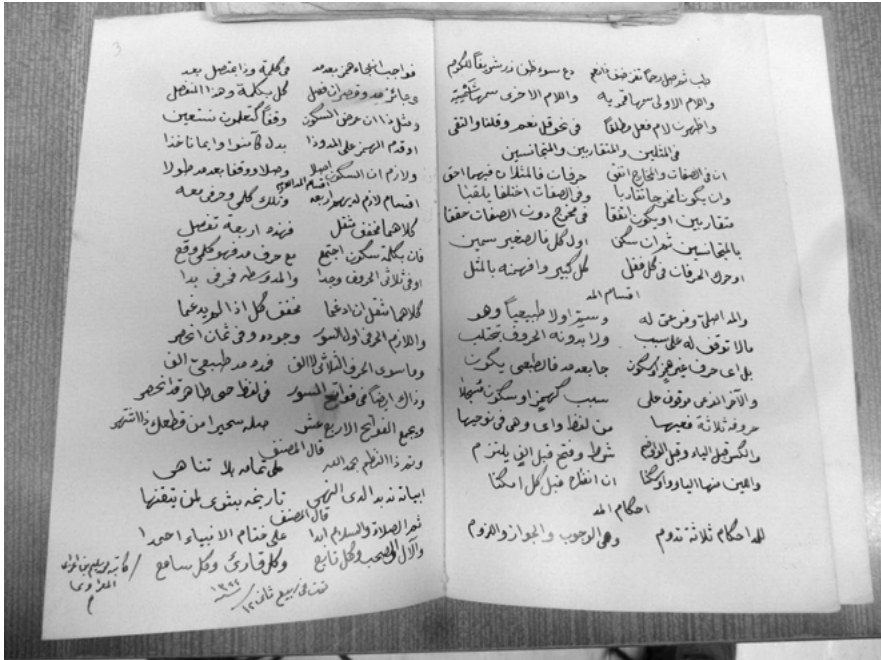 طب ثم صل رحماً تفز ضف ذا نعم دع سوء ظن زر شريفاً للكرم
واللام الاولى سمها قمريه واللام الاخرى سمها شمسية
واظهرن لام فعل مطلقاً فى نحو قل نعم وقلنا والتقى
فى المثلين والمتقاربين والمتجانسين
ان فى الصفات والمخارج اتفق حرفان فالمثلان فيهما احق
وان يكونا مخرجا تقاربا وفى الصفات اختلفا يلقبا
متقاربين او يكونا اتفقا فى مخرج دون الصفات حققا
بالمتجانسين ثم ان سكن اول كل فالصغير سمين
او حرك الحرفان فى كل فقل كل كبير وافهمنه بالمثل
اقسام المد
والمد اصلى وفرعى له وسم اولا طبيعياً وهو
مالا توقف له على سبب ولا بدونه الحروف تجتلب
بل اى حرف غير همز او سكون جا بعد مد فالطبعى يكون
والآخر الفرعى موقوف على سبب كهمز او سكون مسجلا
حروفه ثلاثة فعيها من لفظ واى وهى فى نوحيها
والكسر قبل الياء وقبل الواو ضم شرط وفتح قبل الف يلتزم
واللين منها اليا وواو سكنا ان انفتاح قبل كل امكنا
احكام المد
للمد احكام ثلاثة تدوم وهى الوجوب والجواز واللزوم
3
فواجب ان جاء همز بعد مد فى كلمة وذا بمتصل يعد
وجائز مد وقصر ان فصل كل بكلمة وهذا المنفصل
ومثل ذا ان عرض السكون وقفاً كتعلمون نستعين
او قدم الهمز على المد وذا بدل كآمنوا وايمانا خذا
ولازم ان السكون اصلا وصلا ووقفا بعد مد طولا
اقسام المد اللازم
اقسام لازم لديهم اربعه وتلك كلمى وحرفى معه
كلاهما مخفف مثقل فهذه اربعة تفصل
فان بكلمة سكون اجتمع مع حرف مد فهو كلمى وقع
او فى ثلاثى الحروف وجدا والمد وسطه فحرفى بدا
كلاهما مثقل ان ادغما مخفف كل اذا لم يدغما
واللازم الحرفى اول السور وجوده وفى ثمان انحصر
وما سوى الحرف الثلاثى لا الف فمده مد طبيعى الف
وذاك ايضاً فى فواتح السور فى لفظ حى طاهر قد انحصر
ويجمع الفواتح الاربع عشر صله سحيرا من قطعك ذا اشتهر
قال المصنف
وتم ذا النظم بحمد الله على تمامه بلا تناهى
ابياته ند بدا لذى النهى تاريخه بشرى لمن يتقنها
قال المصنف
ثم الصلاة والسلام ابدا على ختام الانبياء احمدا
والآل والصحب وكل تابع وكل قارئ وكل سامع
تمت فى ربيع ثانى ١٢